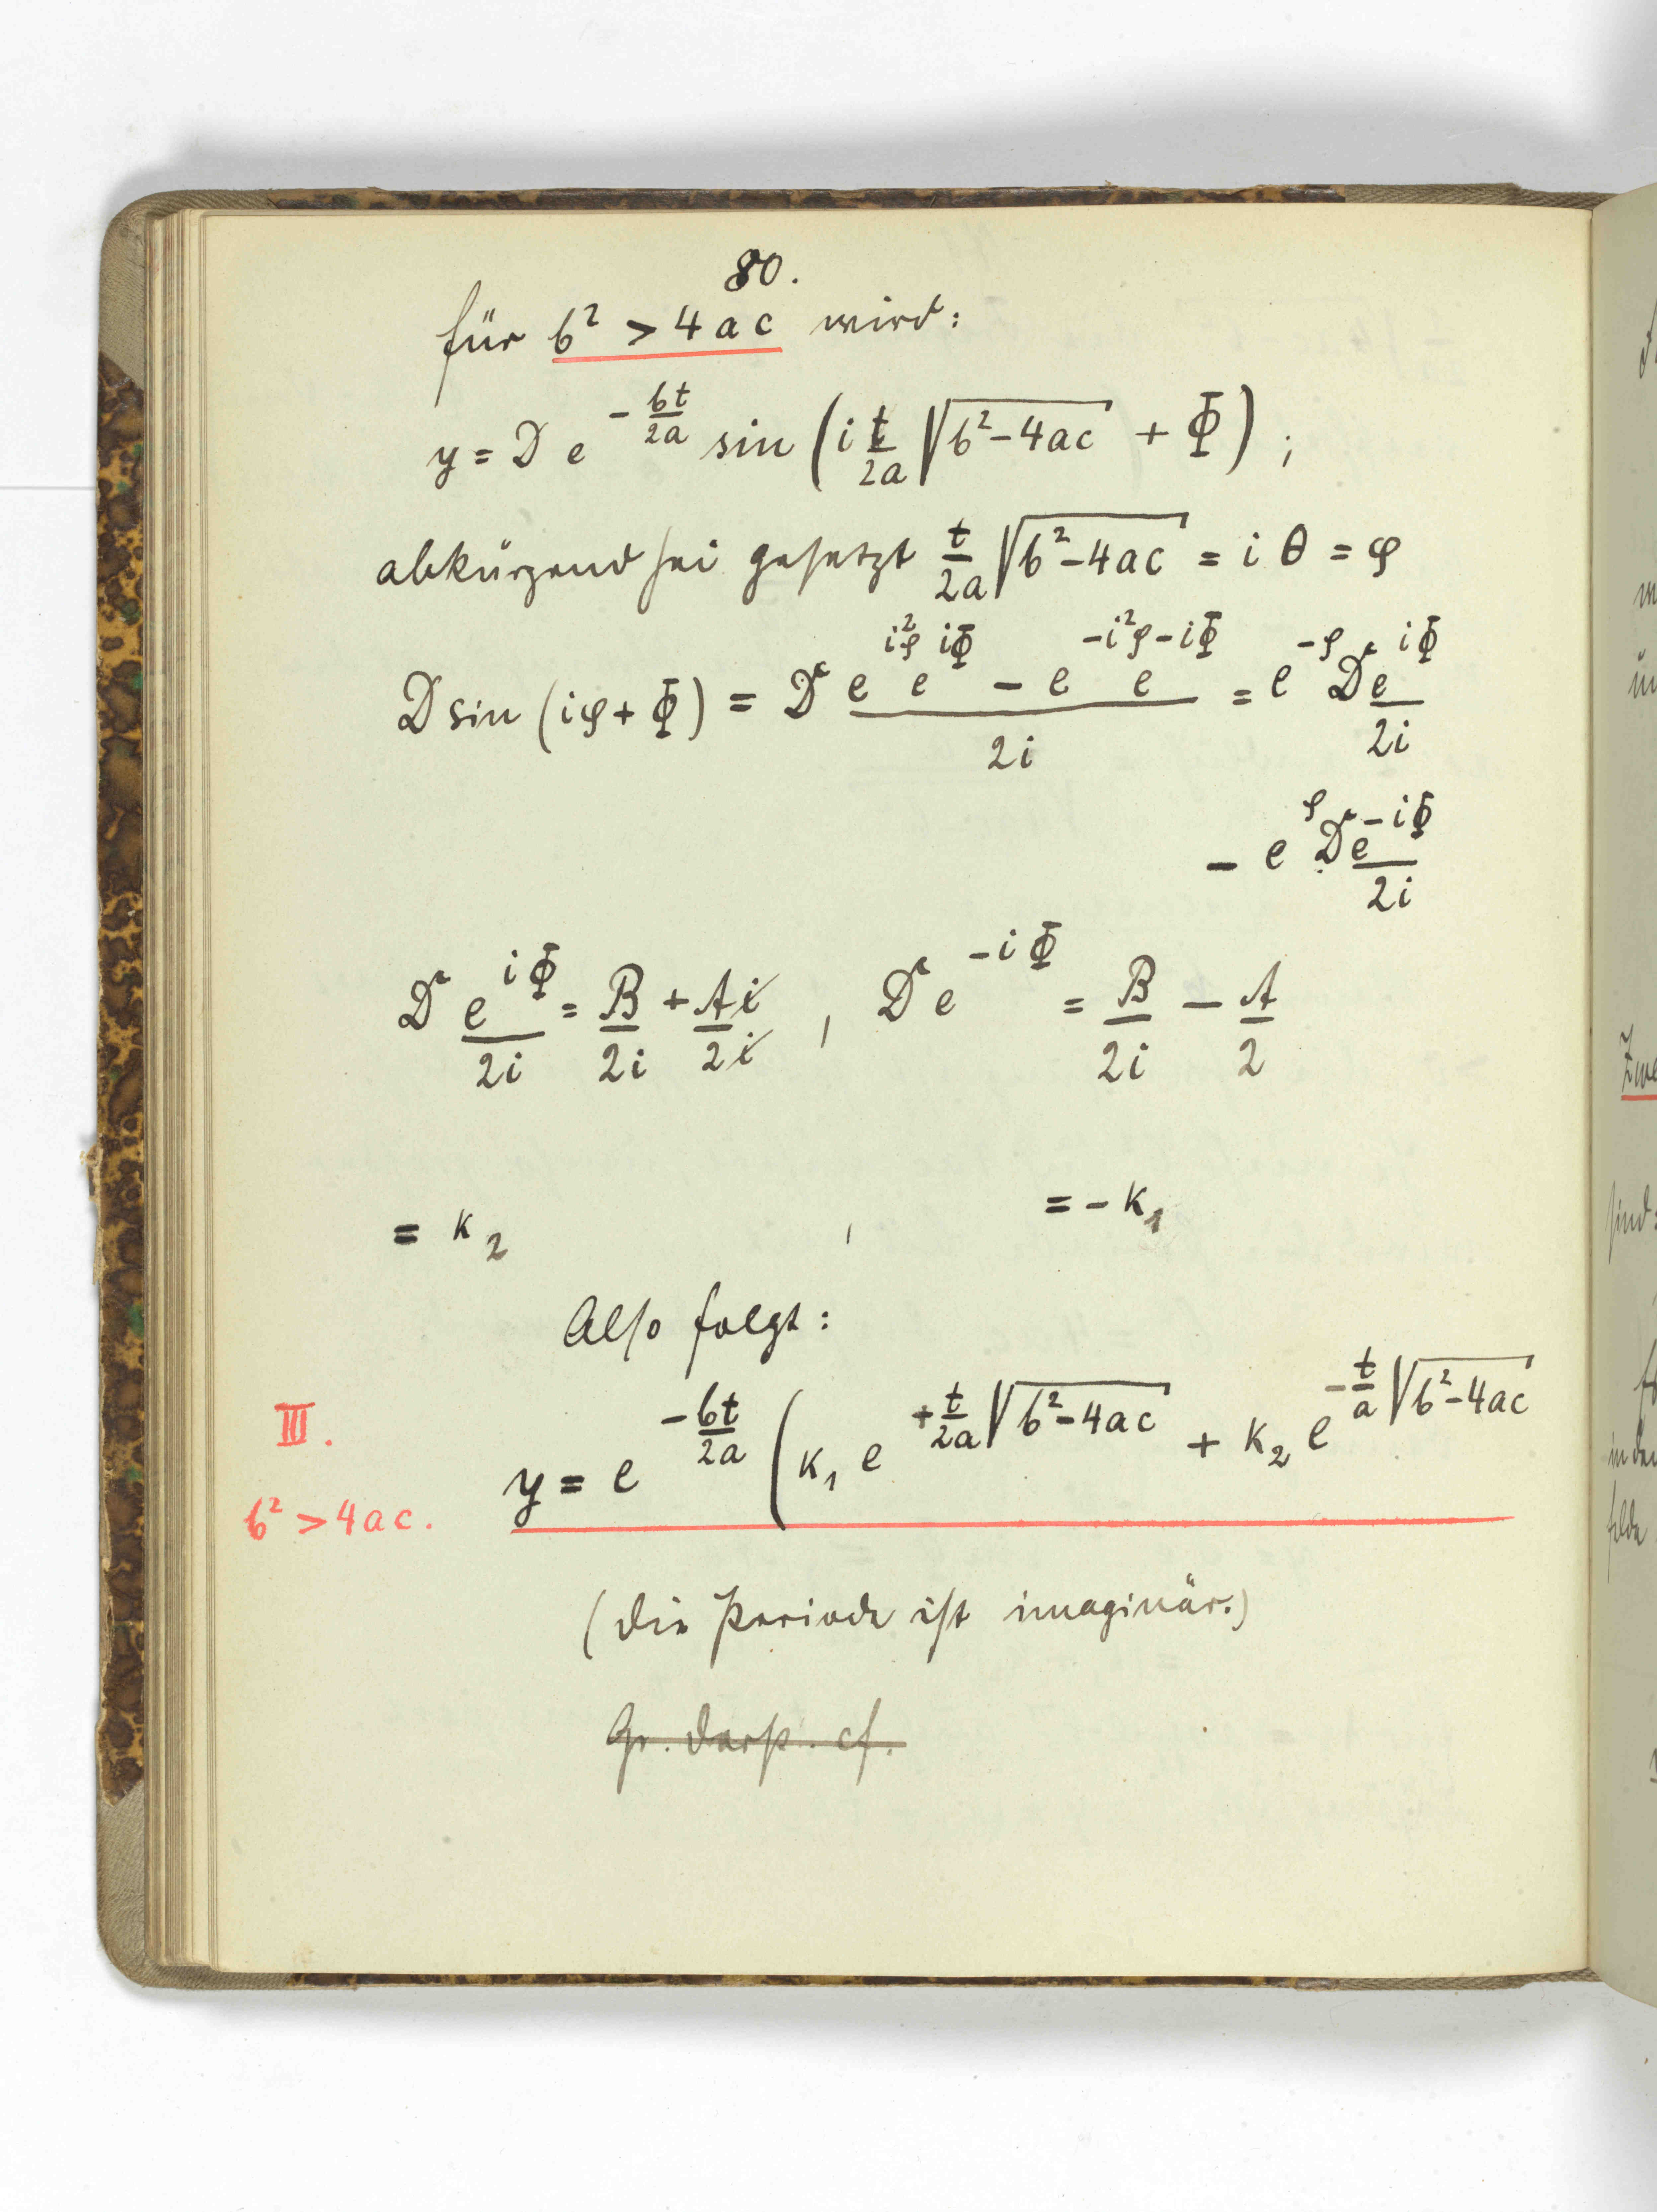 80.
für b² > 4ac wird:
y = D e^{-bt/2a} sin (i t/2a √(b²-4ac) + Φ);
abkürzend sei gesetzt t/2a √(b²-4ac) = i θ = φ
D sin (iφ + Φ) = D (e^{i²φ} e^{iΦ} - e^{-i²φ} e^{-iΦ})/2i = e^{-φ} D e^{iΦ}/2i
- e^{φ} D e^{-iΦ}/2i
D e^{iΦ}/2i = B/2i + Ai/2i , D e^{-iΦ} = B/2i - A/2
= k₂ , = - k₁
Also folgt:
III. y = e^{-bt/2a} (k₁ e^{+t/2a √(b²-4ac)} + k₂ e^{-t/a √(b²-4ac)}
b² > 4ac.
(Die Periode ist imaginär.)
Gr. Darst. cf.